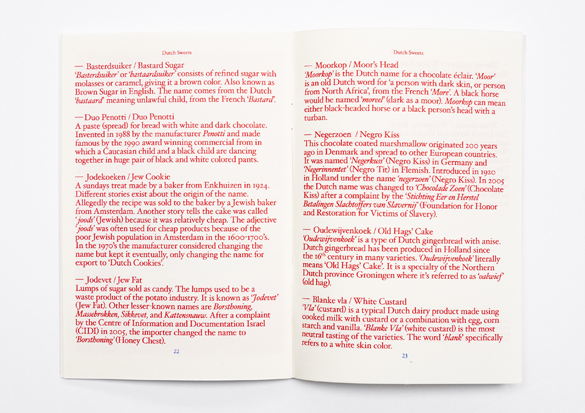 Dutch Sweets
— Basterdsuiker / Bastard Sugar
'Basterdsuiker' or 'bastaardsuiker' consists of refined sugar with
molasses or caramel, giving it a brown color. Also known as
Brown Sugar in English. The name comes from the Dutch
'bastaard' meaning unlawful child, from the French 'Bastard'.
— Duo Penotti / Duo Penotti
A paste (spread) for bread with white and dark chocolate.
Invented in 1988 by the manufacturer Penotti and made
famous by the 1990 award winning commercial from in
which a Caucasian child and a black child are dancing
together in huge pair of black and white colored pants.
— Jodekoeken / Jew Cookie
A sundays treat made by a baker from Enkhuizen in 1924.
Different stories exist about the origin of the name.
Allegedly the recipe was sold to the baker by a Jewish baker
from Amsterdam. Another story tells the cake was called
'joods' (Jewish) because it was relatively cheap. The adjective
'joods' was often used for cheap products because of the
poor Jewish population in Amsterdam in the 1600-1700's.
In the 1970's the manufacturer considered changing the
name but kept it eventually, only changing the name for
export to 'Dutch Cookies'.
— Jodevet / Jew Fat
Lumps of sugar sold as candy. The lumps used to be a
waste product of the potato industry. It is known as 'Jodevet'
(Jew Fat). Other lesser known names are Borsthoning,
Massebrokken, Sikkevet, and Kattensnauw. After a complaint
by the Centre of Information and Documentation Israel
(CIDI) in 2005, the importer changed the name to
'Borsthoning' (Honey Chest).
22
Dutch Sweets
— Moorkop / Moor's Head
'Moorkop' is the Dutch name for a chocolate éclair. 'Moor'
is an old Dutch word for 'a person with dark skin, or person
from North Africa', from the French 'More'. A black horse
would be named 'moreel' (dark as a moor). Moorkop can mean
either black-headed horse or a black person's head with a
turban.
— Negerzoen / Negro Kiss
This chocolate coated marshmallow originated 200 years
ago in Denmark and spread to other European countries.
It was named 'Negerkuss' (Negro Kiss) in Germany and
'Negerinnentet' (Negro Tit) in Flemish. Introduced in 1920
in Holland under the name 'negerzoen' (Negro Kiss). In 2005
the Dutch name was changed to 'Chocolade Zoen' (Chocolate
Kiss) after a complaint by the 'Stichting Eer en Herstel
Betalingen Slachtoffers van Slavernij' (Foundation for Honor
and Restoration for Victims of Slavery).
— Oudewijvenkoek / Old Hags' Cake
'Oudewijvenkoek' is a type of Dutch gingerbread with anise.
Dutch gingerbread has been produced in Holland since
the 16th century in many varieties. 'Oudewijvenkoek' literally
means 'Old Hags' Cake'. It is a specialty of the Northern
Dutch province Groningen where it's referred to as 'oalwief'
(old hag).
— Blanke vla / White Custard
'Vla' (custard) is a typical Dutch dairy product made using
cooked milk with custard or a combination with egg, corn
starch and vanilla. 'Blanke Vla' (white custard) is the most
neutral tasting of the varieties. The word 'blank' specifically
refers to a white skin color.
23